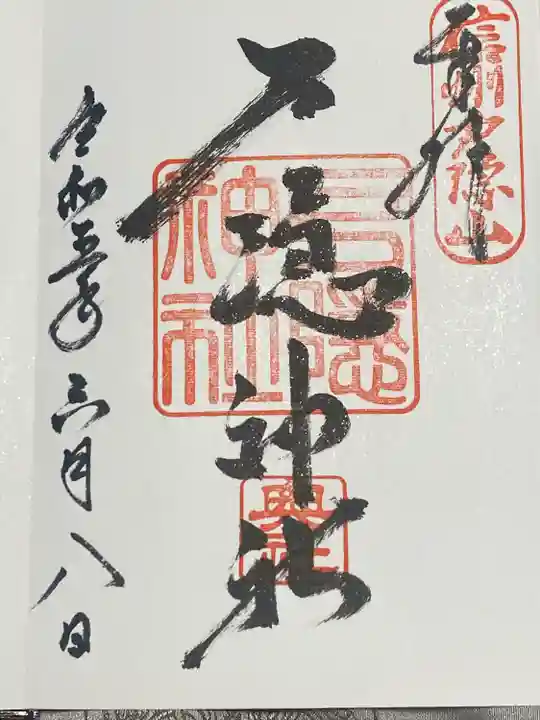 奉拝
信州戸隠山
戸隠神社
戸隠神社
奥社
令和五年六月八日